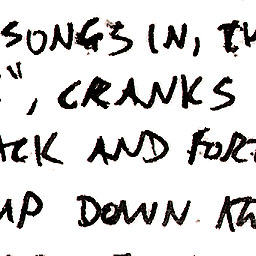 SONGS IN,
", CRANKS
ACK AND FORT
UP DOWN